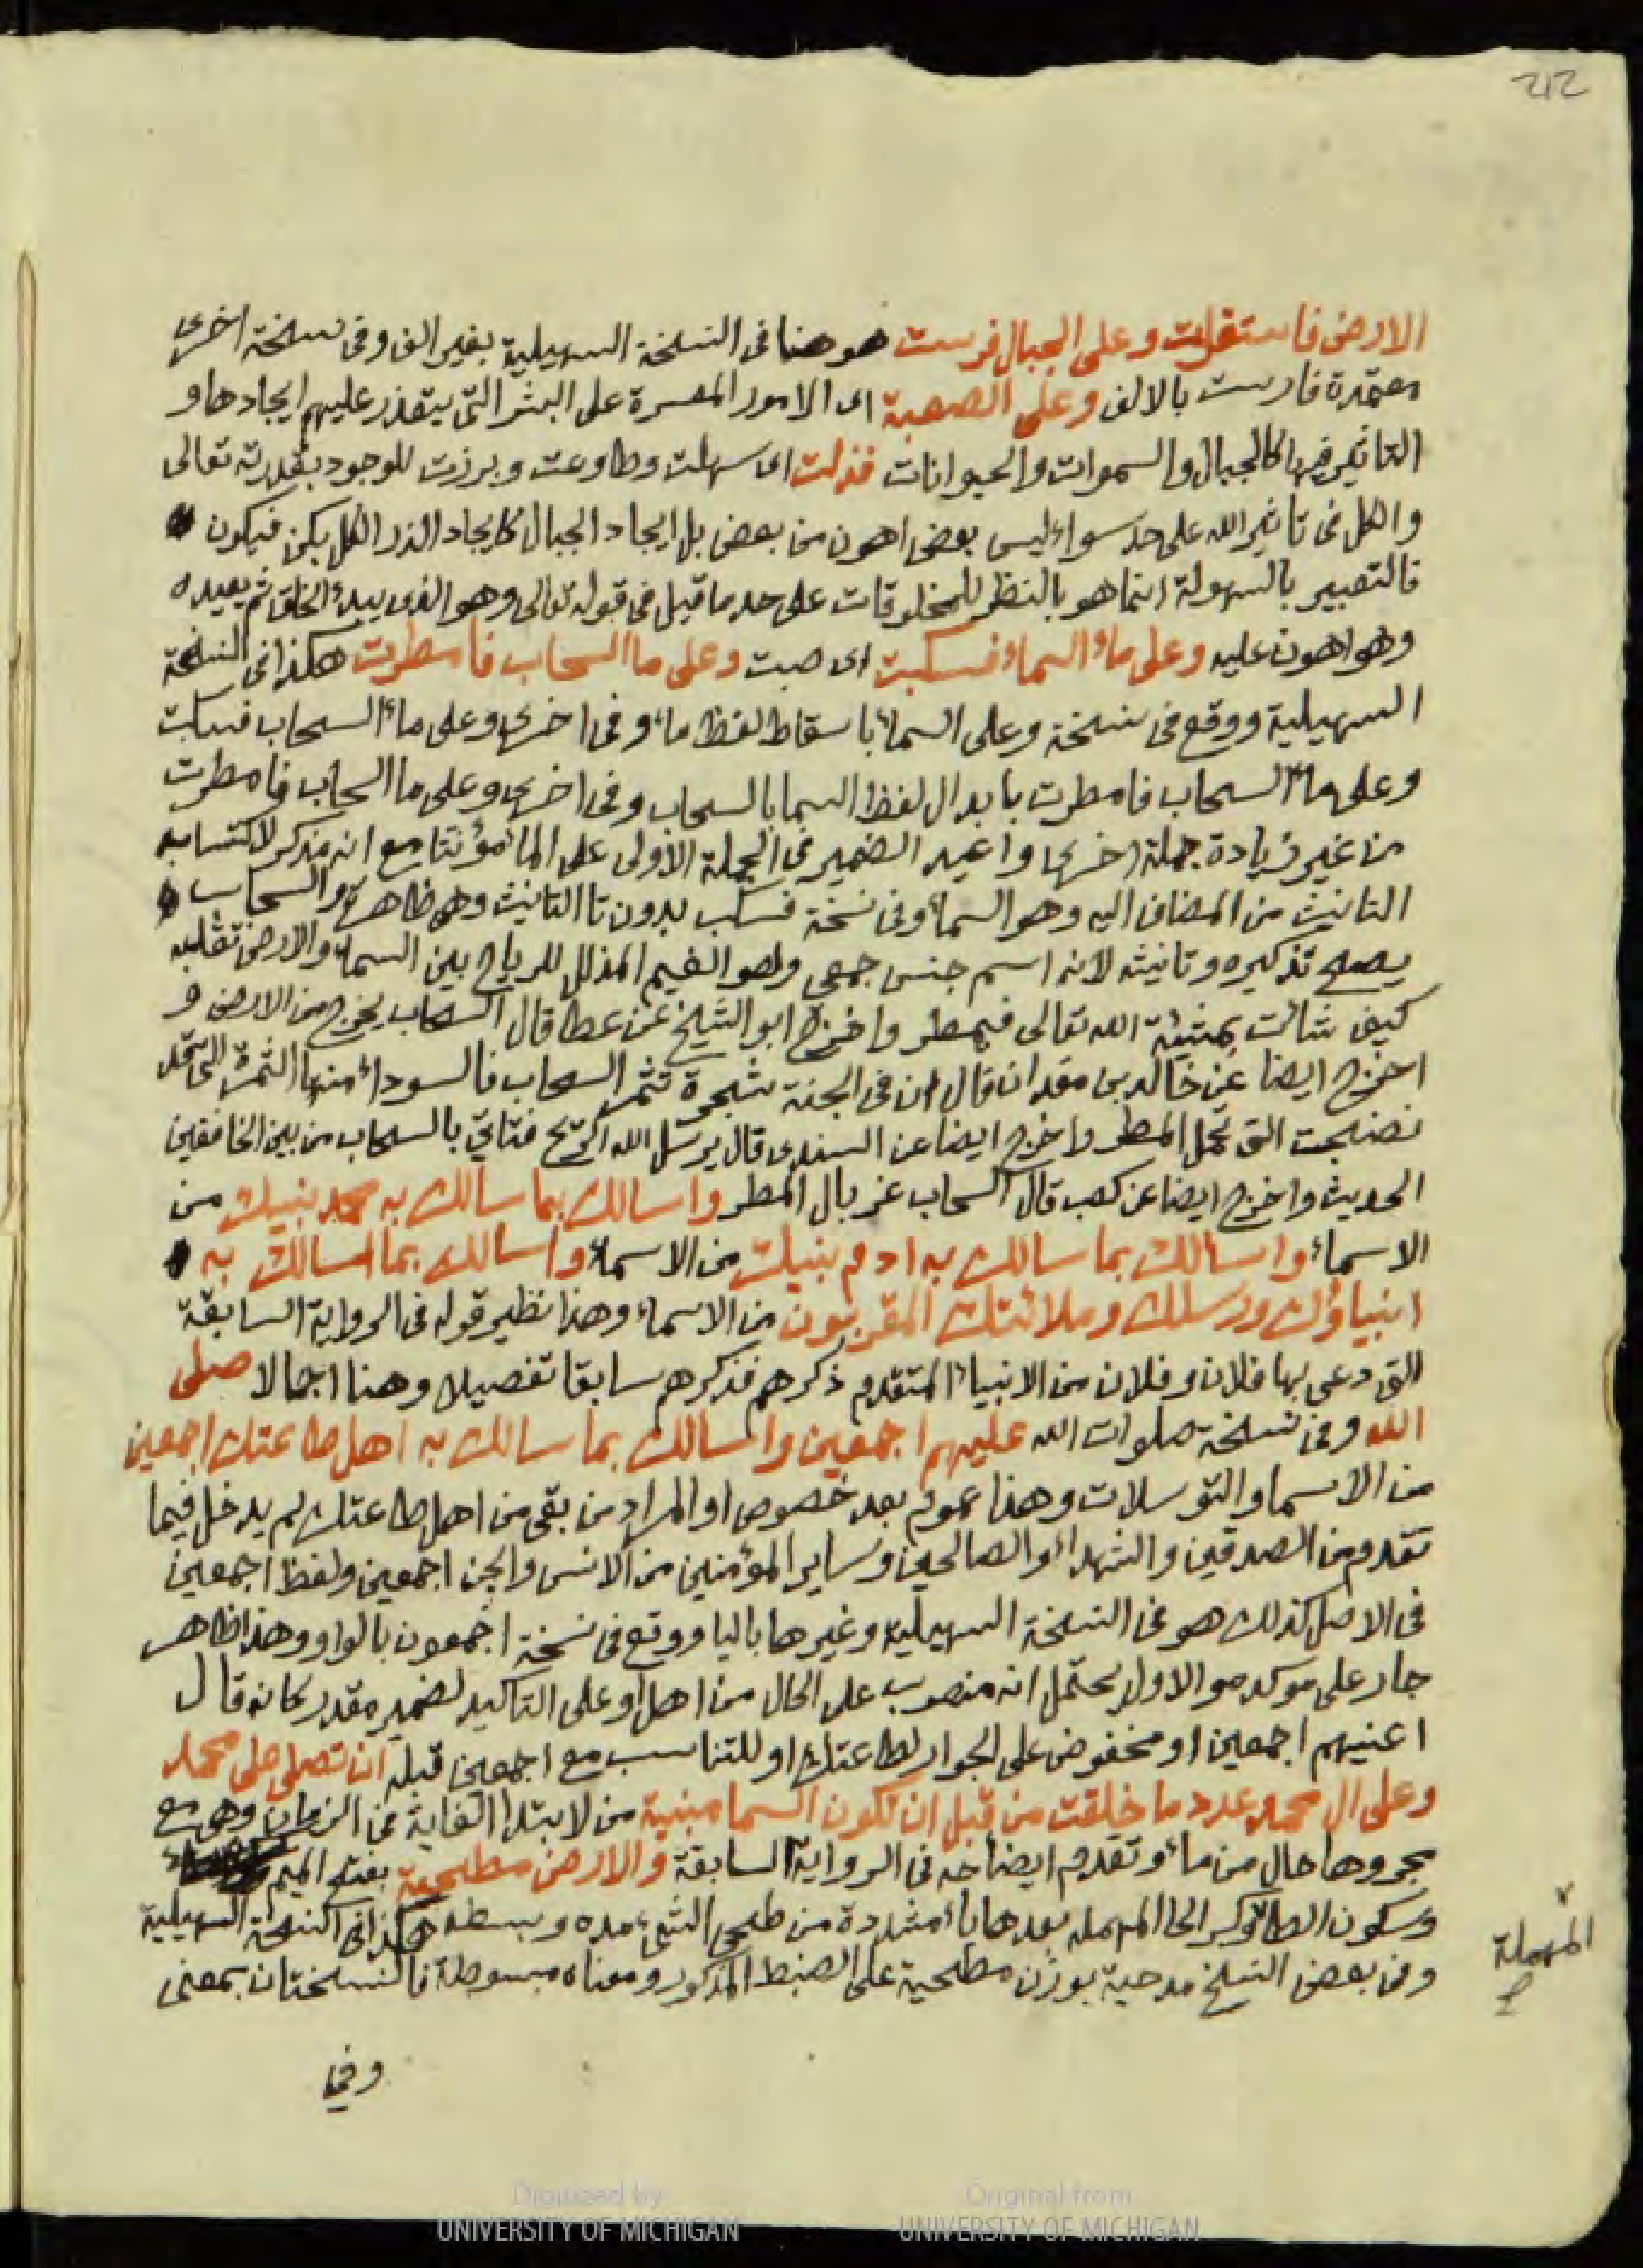 212
الارض فاستقرت وعلى الجبال فرست هو هنا فى النسخة السهيلية بغير الف وفى نسخة اخرى
معتمدة فارست بالالف وعلى الصعبة اى الامور المعسرة على البشر التى يتعذر عليهم ايجادها و
التاثير فيها كالجبال والسموات والحيوانات فذلت اى سهلت وطاوعت وبرزت للوجود بقدرته تعالى
والكل فى تاثير الله على حد سواء ليس بعض اهون من بعض بل ايجاد الجبال كايجاد الذر الكل بكن فيكون
فالتعبير بالسهولة انما هو بالنظر للمخلوقات على حد ما قيل فى قوله تعالى وهو الذى يبدؤ الخلق ثم يعيده
وهو اهون عليه وعلى ماء السماء فسكبت اى صبت وعلى ما السحاب فامطرت هكذا فى النسخة
السهيلية ووقع فى نسخة وعلى السماء باسقاط لفظ ماء وفى اخرى وعلى ماء السحاب فسكبت
وعلى ماء السحاب فامطرت بابدال لفظ السما بالسحاب وفى اخرى وعلى ما السحاب فامطرت
من غير زيادة جملة اخرى واعيد الضمير فى الجملة الاولى على الماء مؤنثا مع انه مذكر لاكتسابه
التانيث من المضاف اليه وهو السماء وفى نسخة فسكب بدون تا التانيث وهى ظاهرة والسحاب
يصح تذكيره وتانيثه لانه اسم جنس جمعى وهو الغيم المذلل للرياح بين السماء والارض تقلبه
كيف شائت بمشيئة الله تعالى فيمطر واخرج ابو الشيخ عن عطا قال السحاب يخرج من الارض و
اخرج ايضا عن خالد بن معدان قال ان فى الجنة شجرة تثمر السحاب فالسوداء منها الثمرة التى قد
نضجت التى تحمل المطر واخرج ايضا عن السدى قال يرسل الله الريح فتاتى بالسحاب من بين الخافقين
الحديث واخرج ايضا عن كعب قال السحاب غربال المطر واسالك بما سالك به محمد نبيك من
الاسماء واسالك بما سالك به ادم نبيك من الاسماء واسالك بما سالك به
انبياؤك ورسلك وملائكتك المقربون من الاسماء وهذا نظير قوله فى الرواية السابقة
التى دعى بها فلان وفلان من الانبياء المتقدم ذكرهم فذكرهم سابقا تفصيلا وهنا اجمالا صلى
الله وفى نسخة صلوات الله عليهم اجمعين واسالك بما سالك به اهل طاعتك اجمعين
من الاسما والتوسلات وهذا عموم بعد خصوص او المراد من بقى من اهل طاعتك لم يدخل فيما
تقدم من الصدقين والشهداء والصالحين وساير المؤمنين من الانس والجن اجمعين ولفظ اجمعين
فى الاصل كذلك هو فى النسخة السهيلية وغيرها باليا ووقع فى نسخة اجمعون بالواو وهذا ظاهر
جار على موكده والاول يحتمل انه منصوب على الحال من اهل او على التاكيد لضمير مقدر كانه قال
اعنيهم اجمعين او مخفوض على الجوار لطاعتك او للتناسب مع اجمعين قبله ان تصلى على محمد
وعلى ال محمد عدد ما خلقت من قبل ان تكون السما مبنية من لابتداء الغاية فى الزمان وهى مع
مجرورها حال من ماء وتقدم ايضاحه فى الرواية السابقة والارض مطحية بفتح الميم
وسكون الطا وكسر الحا المهملة بعدها ياء مشددة من طحى الشئ مده وبسطه هكذا فى النسخة السهيلية
وفى بعض النسخ مدحية بوزن مطحية على الضبط المذكور ومعناه مبسوطة فالنسختان بمعنى
المهملة
وفى
Digitized by
UNIVERSITY OF MICHIGAN
Original from
UNIVERSITY OF MICHIGAN